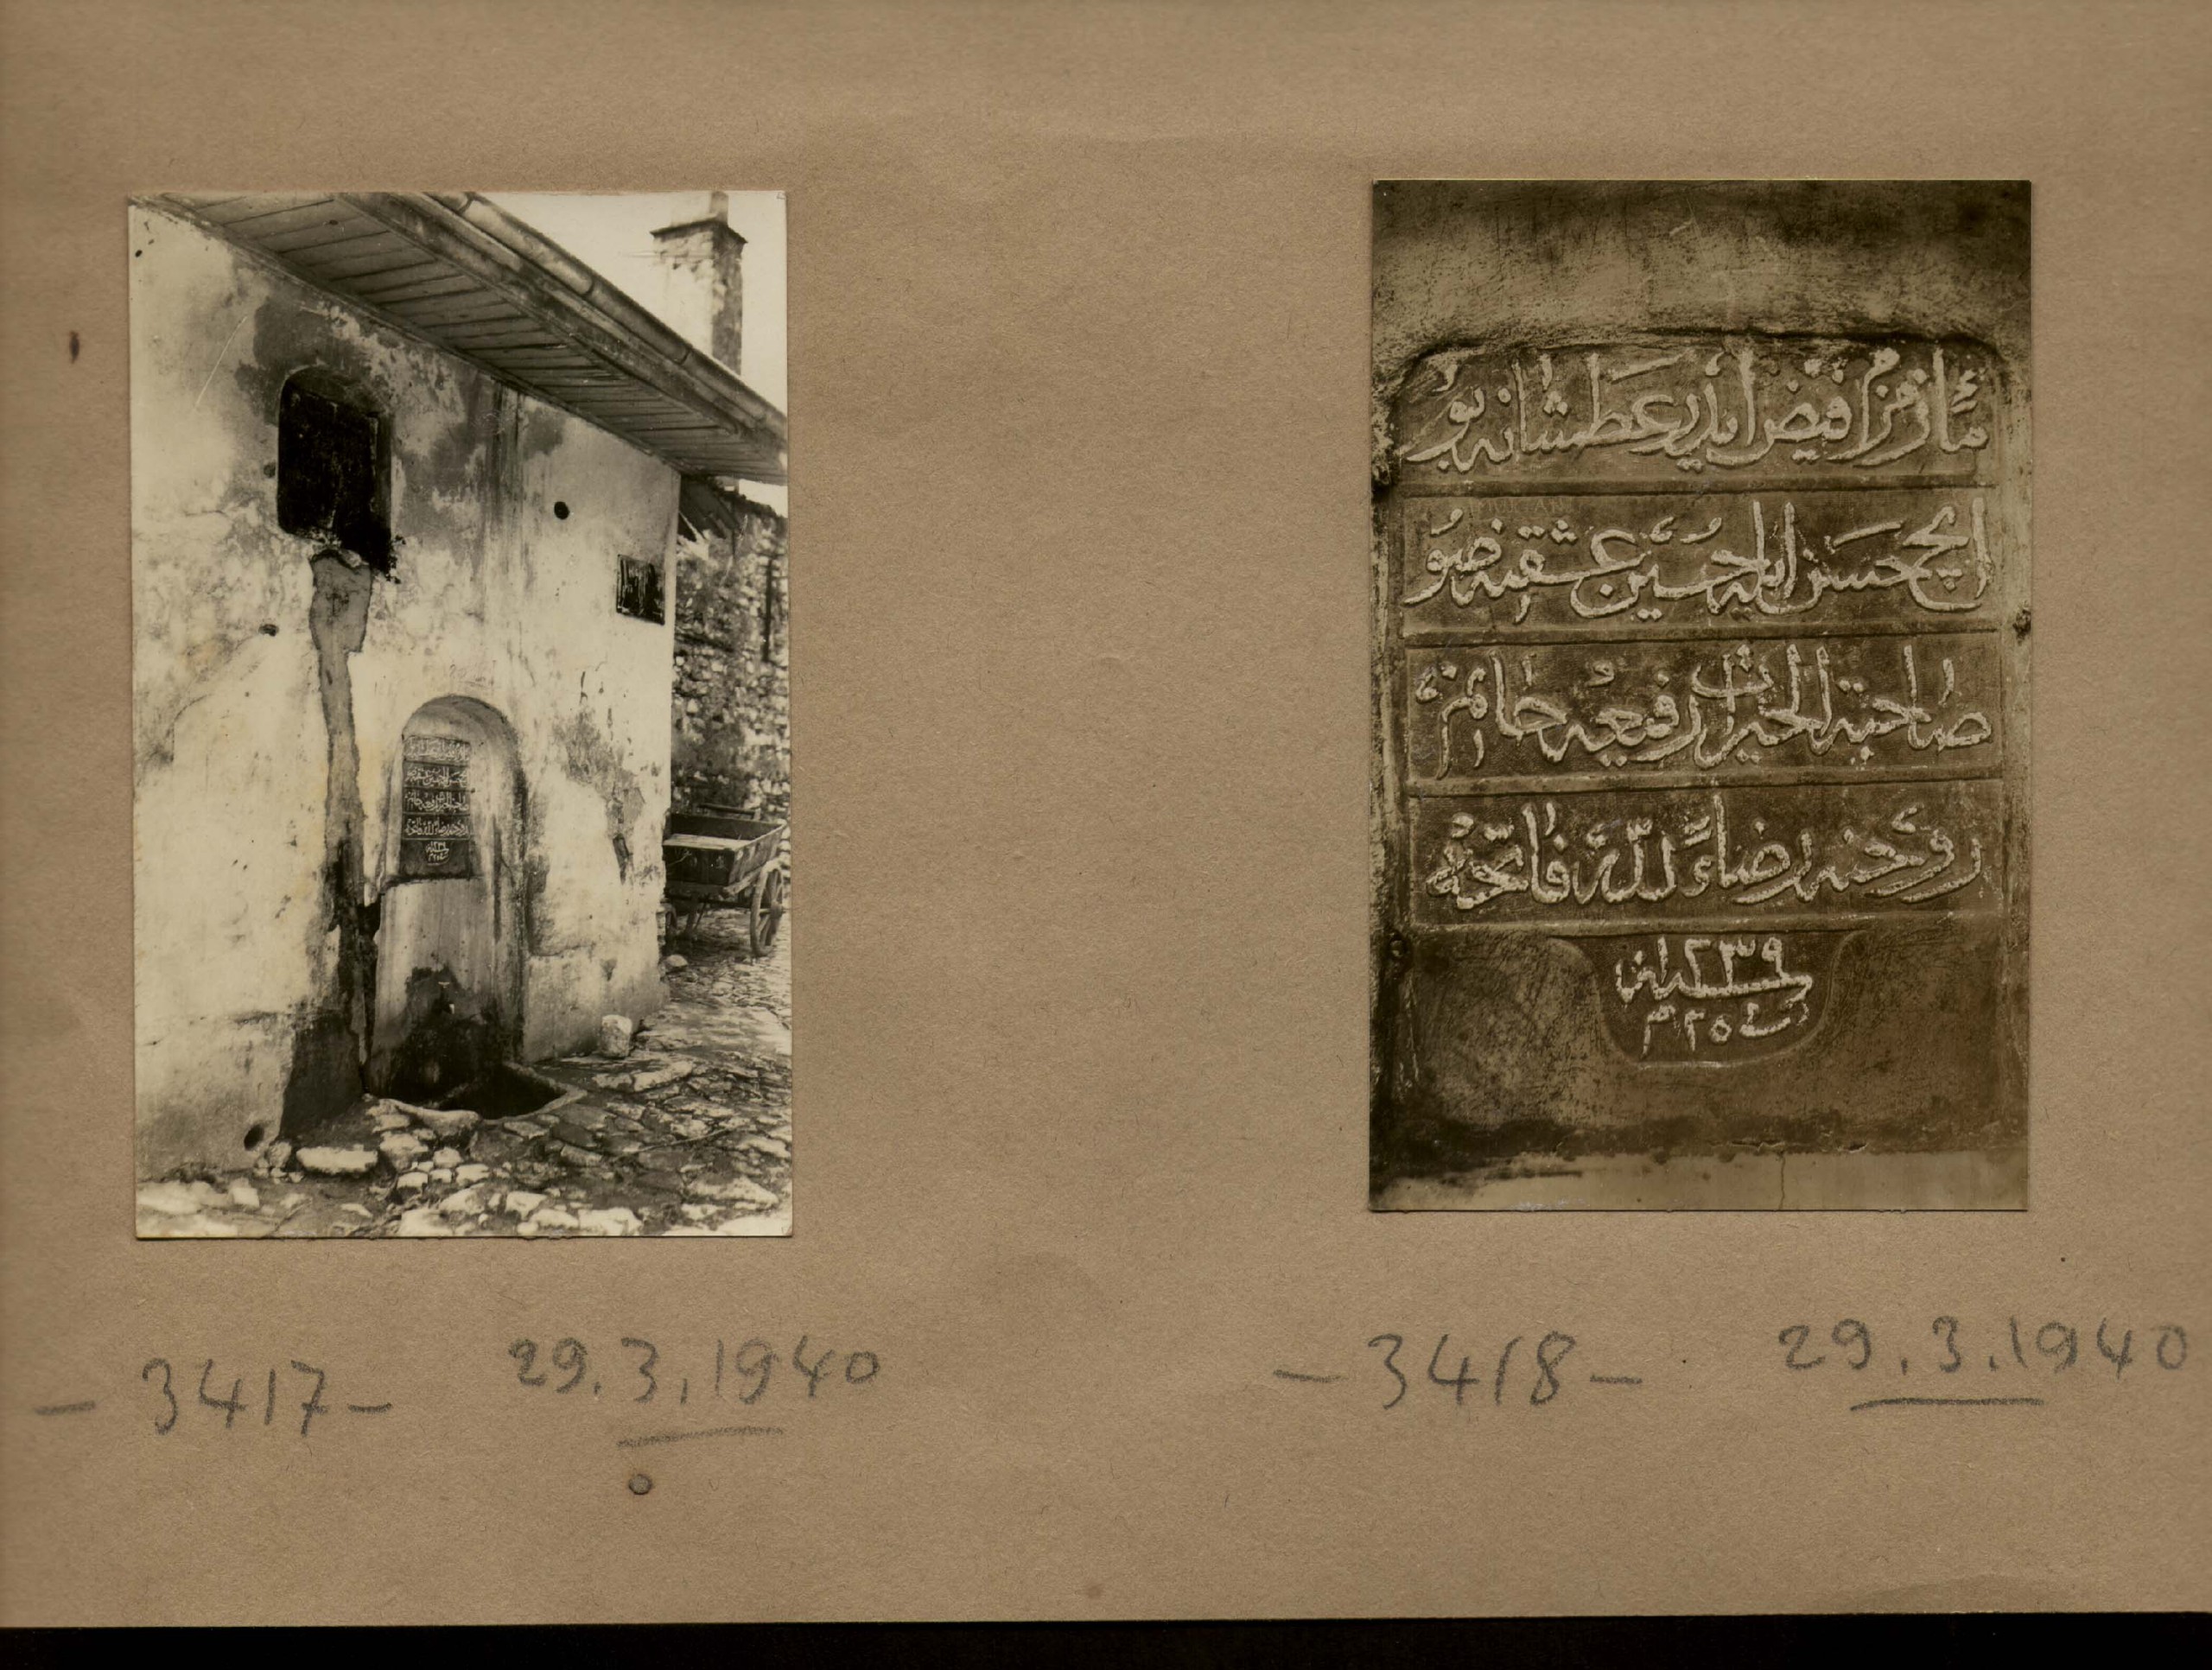 ماء زمزم فيض ايدر عطشانه بو
ايچ حسن ايله حسين عشقنه صو
صاحبة الخيرات رفيعه خانم
روحنه رضاء لله فاتحه
١٢٣٩
سنه
م ٢٥
- 3417 - 29.3.1940
- 3418 - 29.3.1940